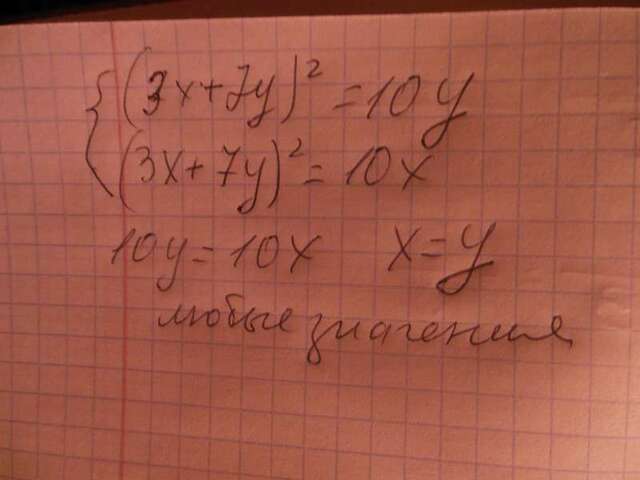 (3x+7y)² =10y
(3x+7y)²= 10x
10y=10x x=y
любые значения